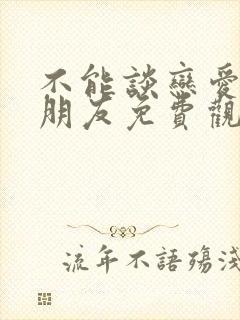 不能談戀愛
朋友免費觀
流年不語殤淺